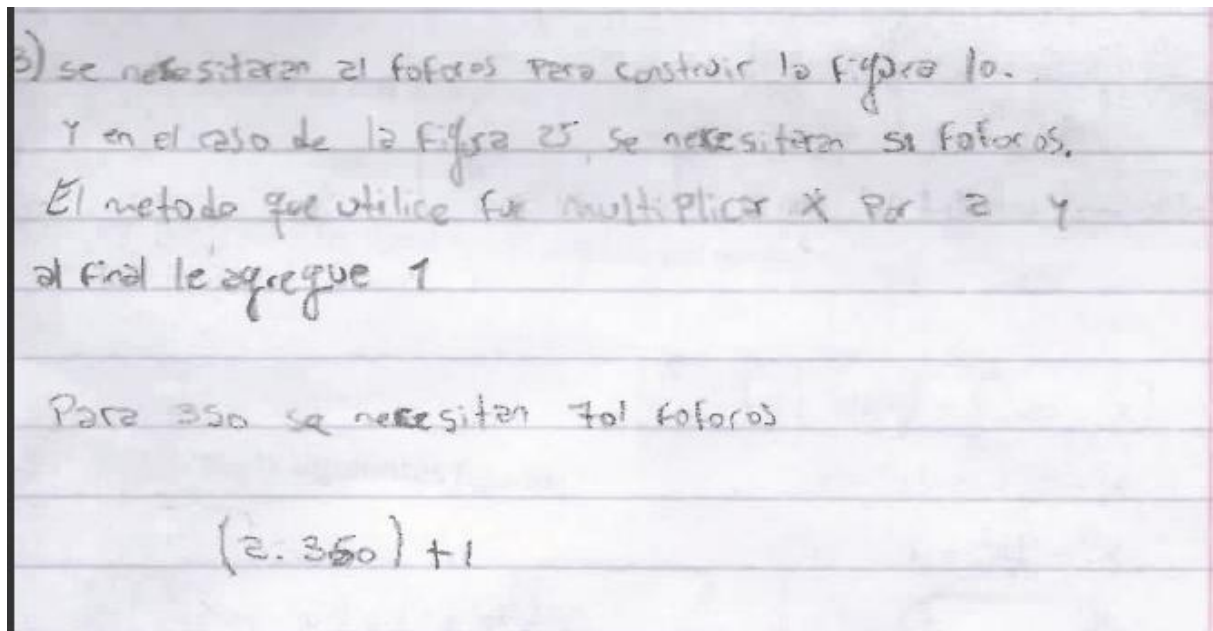 3) se nesesitaran 21 foforos para construir la figura 10.
Y en el caso de la figura 25 se nesesitaran 51 foforos.
El metodo que utilice fue multiplicar X por 2 y
al final le agregue 1
Para 350 se nesesitan 701 foforos
(2.350) + 1